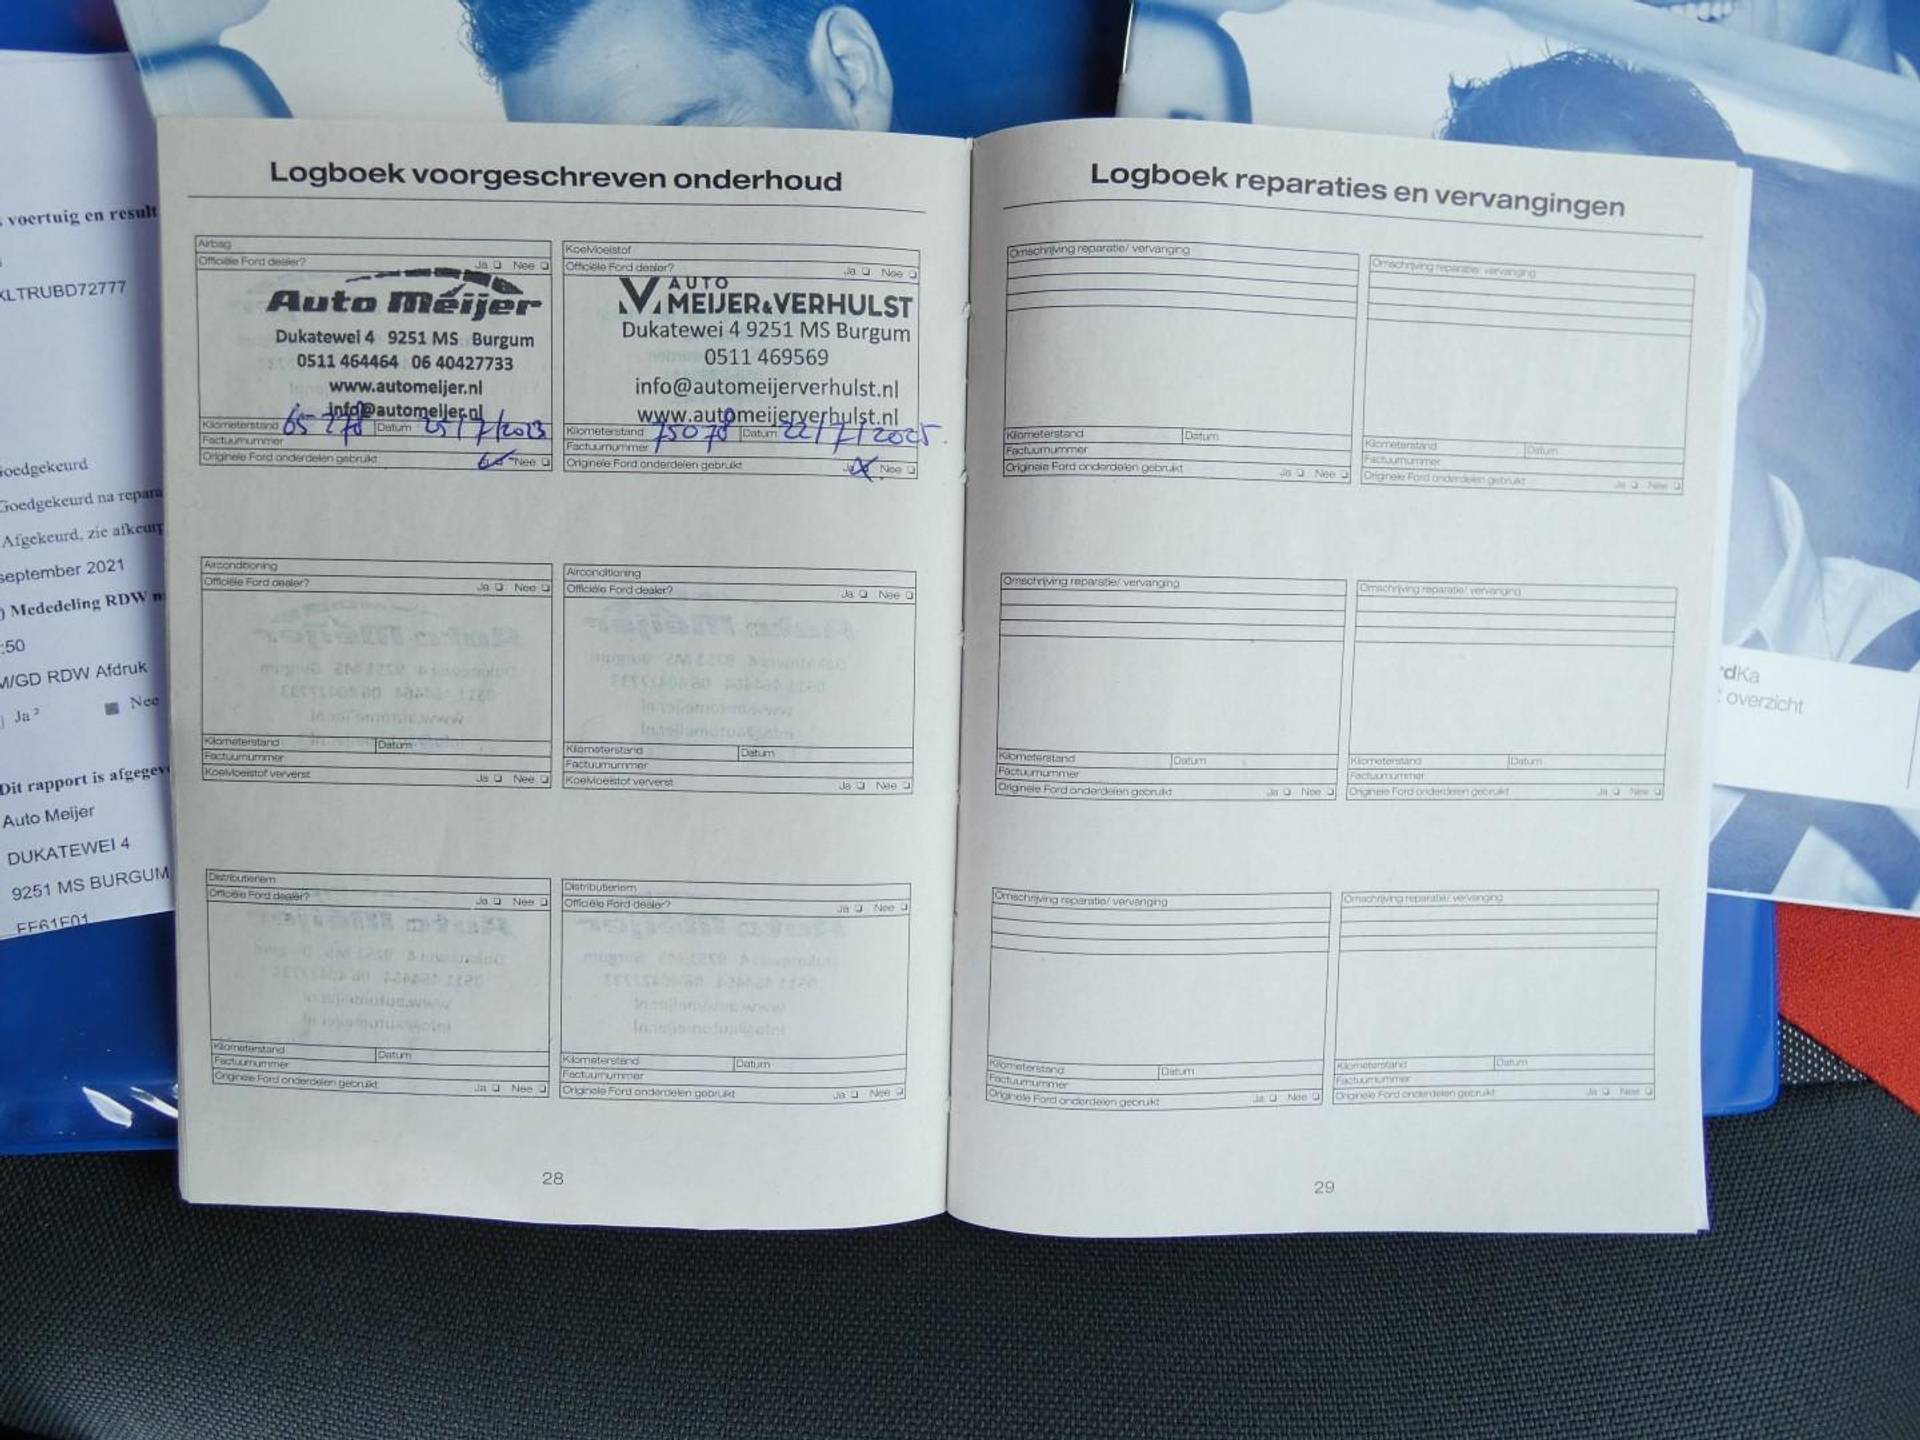 voertuig en result
XLTRUBD72777
Goedgekeurd
Goedgekeurd na repara
Afgekeurd, zie afkeurp
september 2021
) Mededeling RDW n
:50
M/GD RDW Afdruk
Ja ² Nee
Dit rapport is afgegev
Auto Meijer
DUKATEWEI 4
9251 MS BURGUM
Logboek voorgeschreven onderhoud
Airbag
Officiële Ford dealer? Ja Nee
Auto Meijer
Dukatewei 4 9251 MS Burgum
0511 464464 06 40427733
www.automeijer.nl
info@automeijer.nl
Kilometerstand 65 278 Datum 25/7/2023
Factuurnummer
Originele Ford onderdelen gebruikt Nee
Koelvloeistof
Officiële Ford dealer? Ja Nee
AUTO
MEIJER&VERHULST
Dukatewei 4 9251 MS Burgum
0511 469569
info@automeijerverhulst.nl
www.automeijerverhulst.nl
Kilometerstand 75078 Datum 22/7/2025
Factuurnummer
Originele Ford onderdelen gebruikt Ja Nee
Airconditioning
Officiële Ford dealer? Ja Nee
Kilometerstand Datum
Factuurnummer
Koelvloeistof ververst Ja Nee
Airconditioning
Officiële Ford dealer? Ja Nee
Kilometerstand Datum
Factuurnummer
Koelvloeistof ververst Ja Nee
Distributieriem
Officiële Ford dealer? Ja Nee
Kilometerstand Datum
Factuurnummer
Originele Ford onderdelen gebruikt Ja Nee
Distributieriem
Officiële Ford dealer? Ja Nee
Kilometerstand Datum
Factuurnummer
Originele Ford onderdelen gebruikt Ja Nee
28
Logboek reparaties en vervangingen
Omschrijving reparatie/ vervanging
Kilometerstand Datum
Factuurnummer
Originele Ford onderdelen gebruikt Ja Nee
Omschrijving reparatie/ vervanging
Kilometerstand Datum
Factuurnummer
Originele Ford onderdelen gebruikt Ja Nee
Omschrijving reparatie/ vervanging
Kilometerstand Datum
Factuurnummer
Originele Ford onderdelen gebruikt Ja Nee
Omschrijving reparatie/ vervanging
Kilometerstand Datum
Factuurnummer
Originele Ford onderdelen gebruikt Ja Nee
Omschrijving reparatie/ vervanging
Kilometerstand Datum
Factuurnummer
Originele Ford onderdelen gebruikt Ja Nee
Omschrijving reparatie/ vervanging
Kilometerstand Datum
Factuurnummer
Originele Ford onderdelen gebruikt Ja Nee
29
rdKa
overzicht